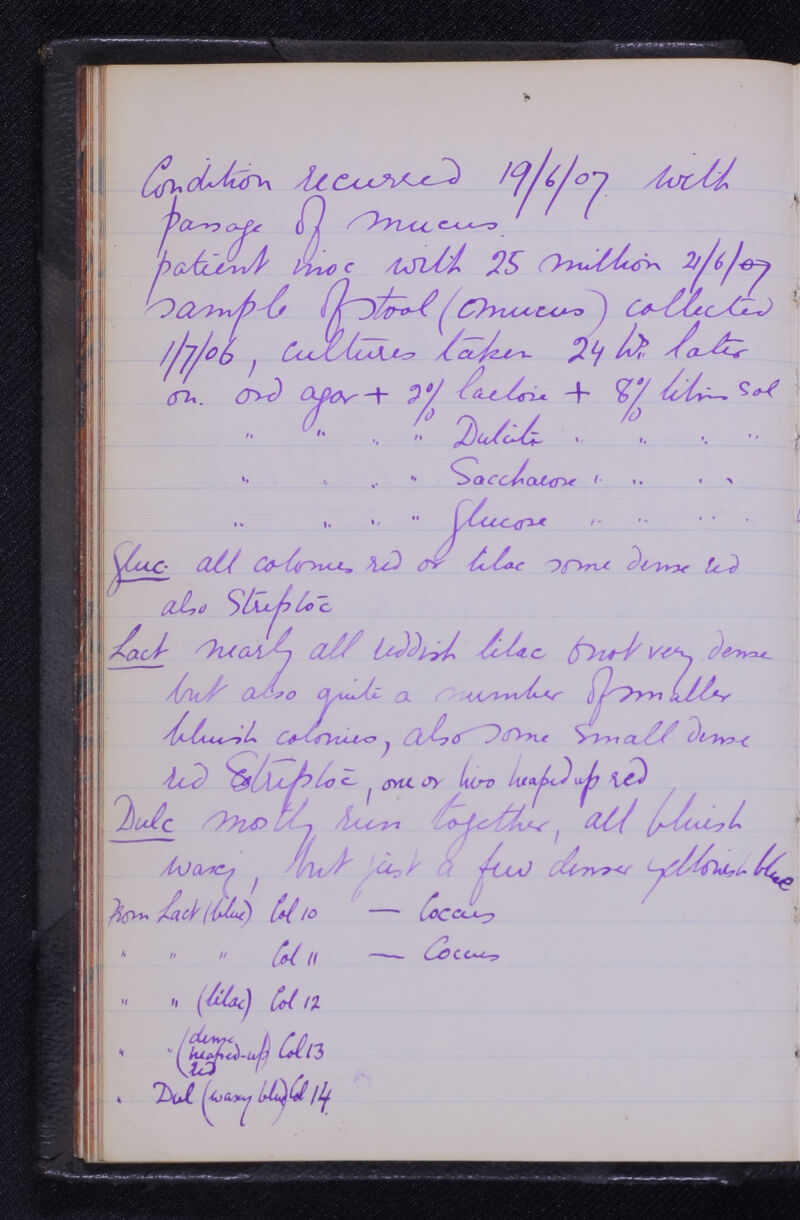 Condition recurred 19/6/07 with
passage of mucus.
patient inoc with 25 million 21/6/07
sample of stool (mucus) collected
1/7/06, cultures taken 24 hrs later
on. ord agar + 2% lactose + 8% litmus sol
" " " " Dulcite " " " "
" " " " Saccharose " " " "
" " " " Glucose " " " "
Gluc. all colonies red or lilac some dense red
also Streptoc
Lact nearly all reddish lilac & not very dense
but also quite a number of smaller
bluish colonies, also some small dense
red Streptoc, one or two heaped up red
Dulc mostly run together, all bluish
waxy, but just a few denser yellowish blue
From Lact (blue) Col 10 — Coccus
" " " Col 11 — Coccus
" " (lilac) Col 12
" " (dense heaped-up red) Col 13
" Dul (waxy blue) Col 14